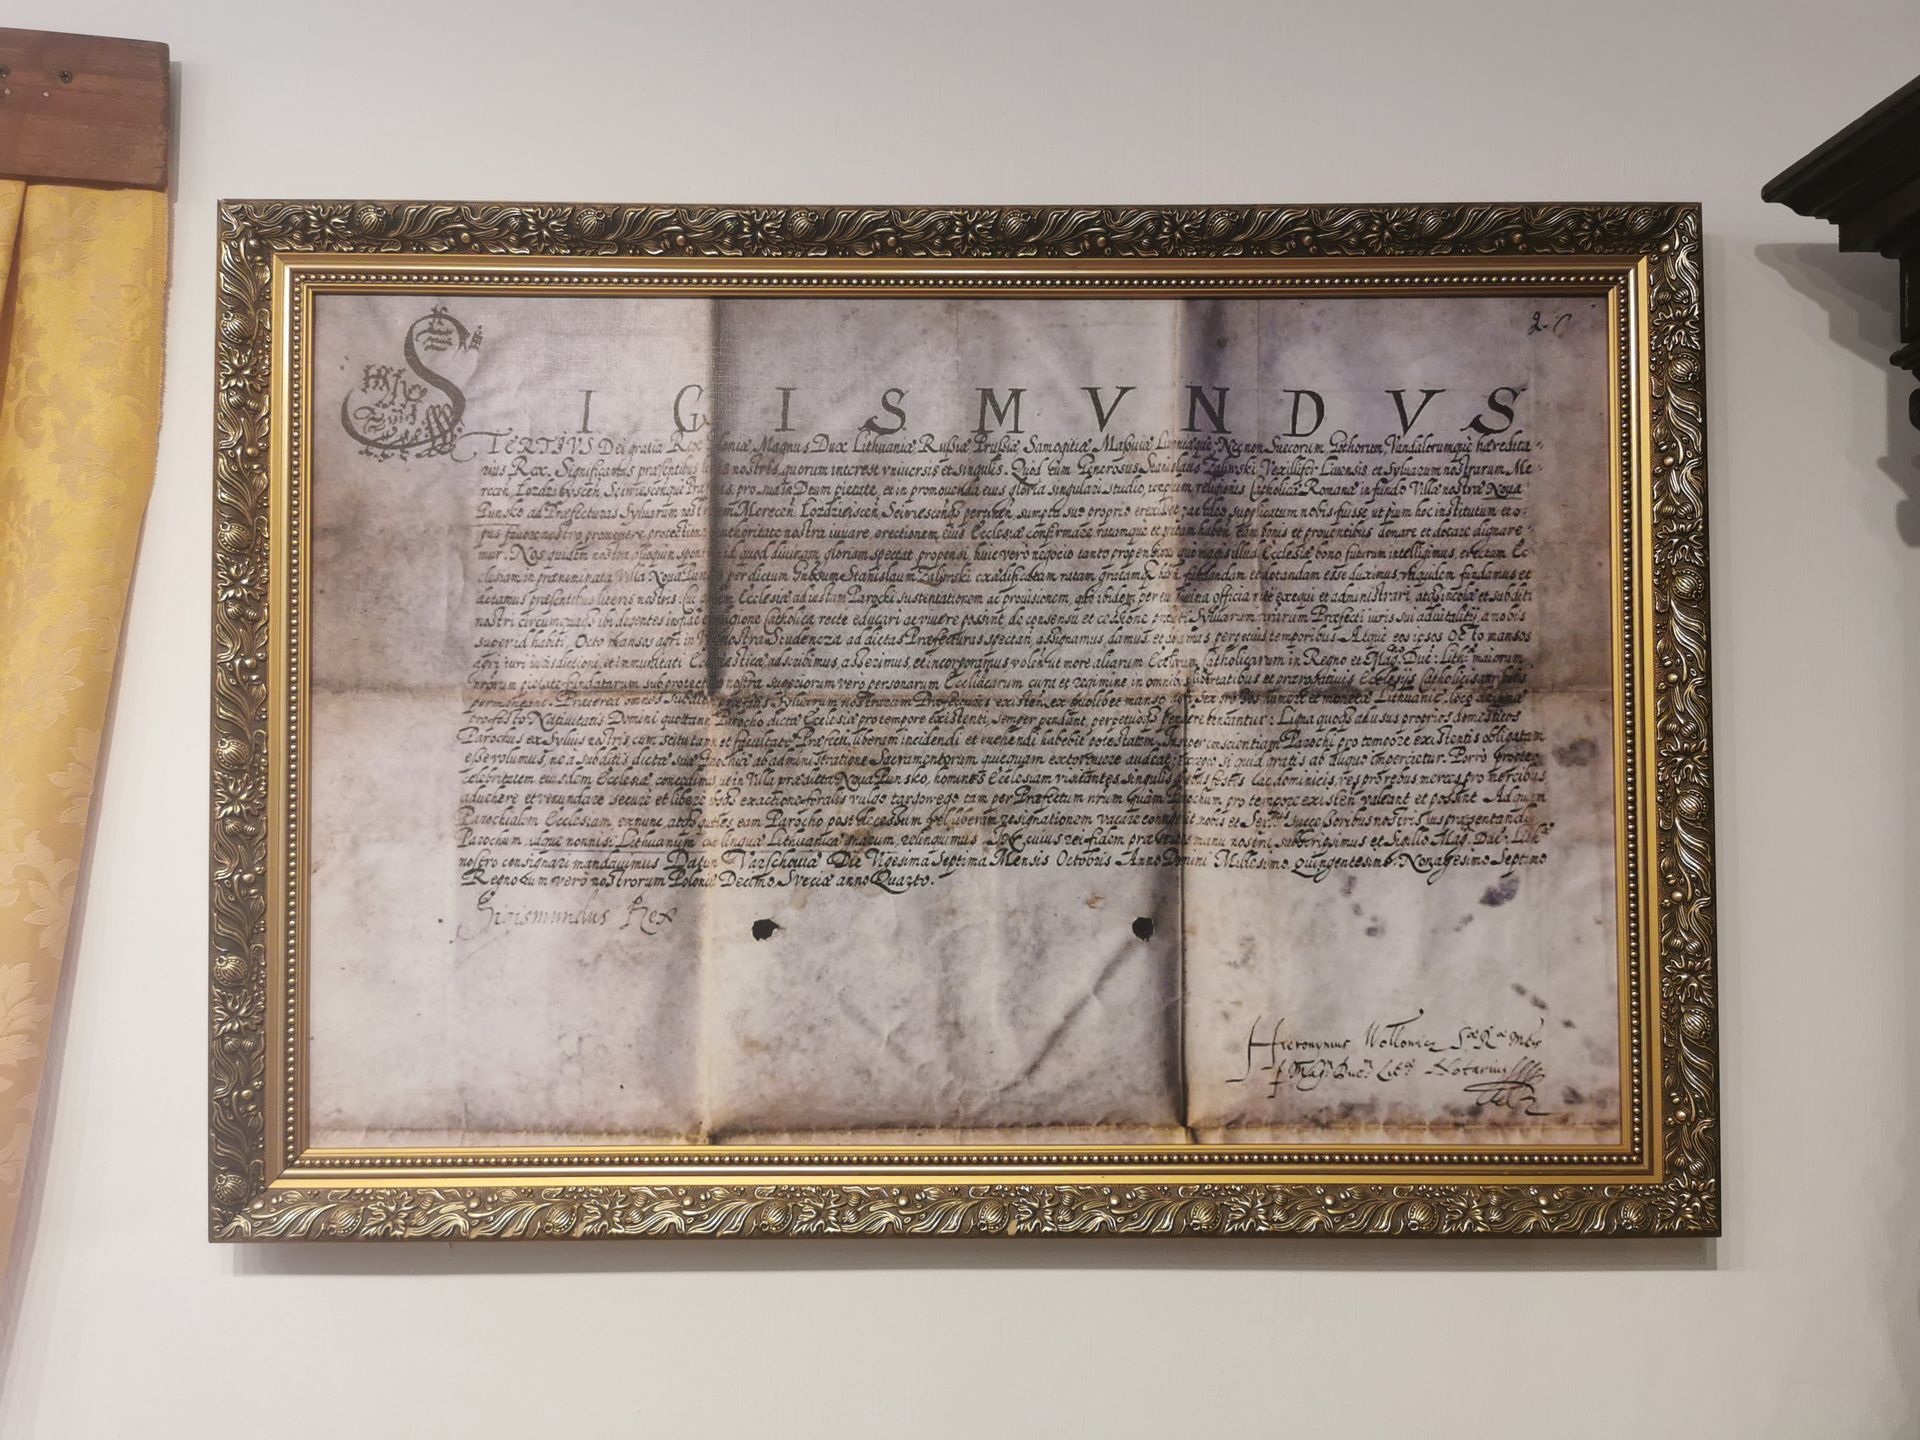 2.
SIGISMVNDVS
TERTIVS Dei gratia Rex Poloniæ Magnus Dux Lithuaniæ Rußiæ Prußiæ Samogitiæ Maßouiæ Liuoniæque, Necnon Suecorum Gothorum, Vandalorumque hæredita-
rius Rex. Significamus præsentibus nostris, quorum interest vniuersis et singulis. Quod cum Generosus Stanislaus Zaliwski Vexillifer Liuensis, et Syluarum nostrarum Me-
pro sua in Deum pietate, et in promouenda eius gloria singulari studio, templum religionis Catholicæ Romanæ in fundo Villæ nostræ Noua
Punsko ad Præfecturas Syluarum sumptu suo proprio supplicatum nobis fuisse, ut pium hoc institutum et o-
pus fauore nostro promouere protectione authoritate nostra iuuare, erectionem eius Ecclesiæ confirmare ratamque et gratam habere, eam bonis et prouentibus donare et dotare dignare-
mur. Nos quidem nostra quod diuinam gloriam spectat propensi, huic vero negocio tanto propensiores quo magis illud Ecclesiæ bono futurum intelligimus, erectam Ec-
clesiam in prænominata Villa Noua Punsko per dictum Stanislaum Zaliwski exædificatam ratam gratamque fundandam et dotandam esse duximus, fundamus et
dotamus præsentibus literis nostris. Ecclesiæ ad iustam Parochi sustentationem ac prouisionem, quo ibidem officia rite exequi et administrari, incolæ et subditi
nostri religione Catholica recte educari ac viuere possint de consensu et Syluarum Præfecti iuris sui aduitalitij a nobis
super id habiti. Octo mansos agri in nostra Studencza ad dictas Præfecturas assignamus, damus et perpetuis temporibus. Atque eos ipsos Octo mansos
agri iuri iurisdictioni, et immunitati Ecclesiasticæ adscribimus, asserimus, et incorporamus more aliarum Catholicarum in Regno et Mag: Duc: Lith: maiorum
nrorum pietate fundatarum sub protectione nostra superiorum vero personarum cura et regimine, in omnibus libertatibus et prærogatiuis Ecclesijs Catholicis
permaneant. Præterea omnes Syluarum nostrarum Præfecturis et manso agri sex monetæ Lithuanicæ loco
pro festo Natiuitatis Domini quotannis Parocho dictæ Ecclesiæ pro tempore existenti, semper pendant, perpetuoque pendere teneantur: Ligna quoque ad usus proprios domesticos
Parochus ex Syluis nostris cum scitu tamen et facultate Præfecti, liberam incidendi et euehendi habebit potestatem. Insuper conscientiam Parochi pro tempore existentis obligatam
esse volumus, ne a subditis dictæ suæ Parochiæ ab administratione Sacramentorum quicquam extorquere audeat, excepto si quid gratis ab aliquo impercietur. Porro
celebritatem eiusdem Ecclesiæ concedimus ut in Villa prædicta Noua Punsko, homines Ecclesiam visitantes singulis festis ac dominicis, res pro rebus merces pro mercibus
aduehere et venundare secure et libere exactione foralis vulgo targowego tam per Præfectum nrum quam Parochum pro tempore existen valeant et possint. Ad quam
Parochialem Ecclesiam ex nunc, quoties eam Parocho post decessum vel liberam resignationem vacare nobis et successoribus nostris ius præsentandi
Parochum, idque nonnisi Lithuanum linguæ Lithuanicæ gnarum, relinquimus. In cuius rei fidem præsentes manu nostra subscripsimus et Sigillo Mag: Duc: Lith:
nostro consignari mandauimus. Datum Varschouiæ Die Vigesima Septima Mensis Octobris Anno Domini Millesimo, Quingentesimo, Nonagesimo Septimo
Regnorum vero nostrorum Poloniæ Decimo, Sueciæ anno Quarto.
Sigismundus Rex
Hieronymus Wollowicz
Mag: Duc: Lit: Notarius